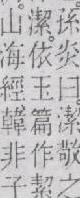 孫炎曰潔敬之
潔。依玉篇作絜
山海經韓非子